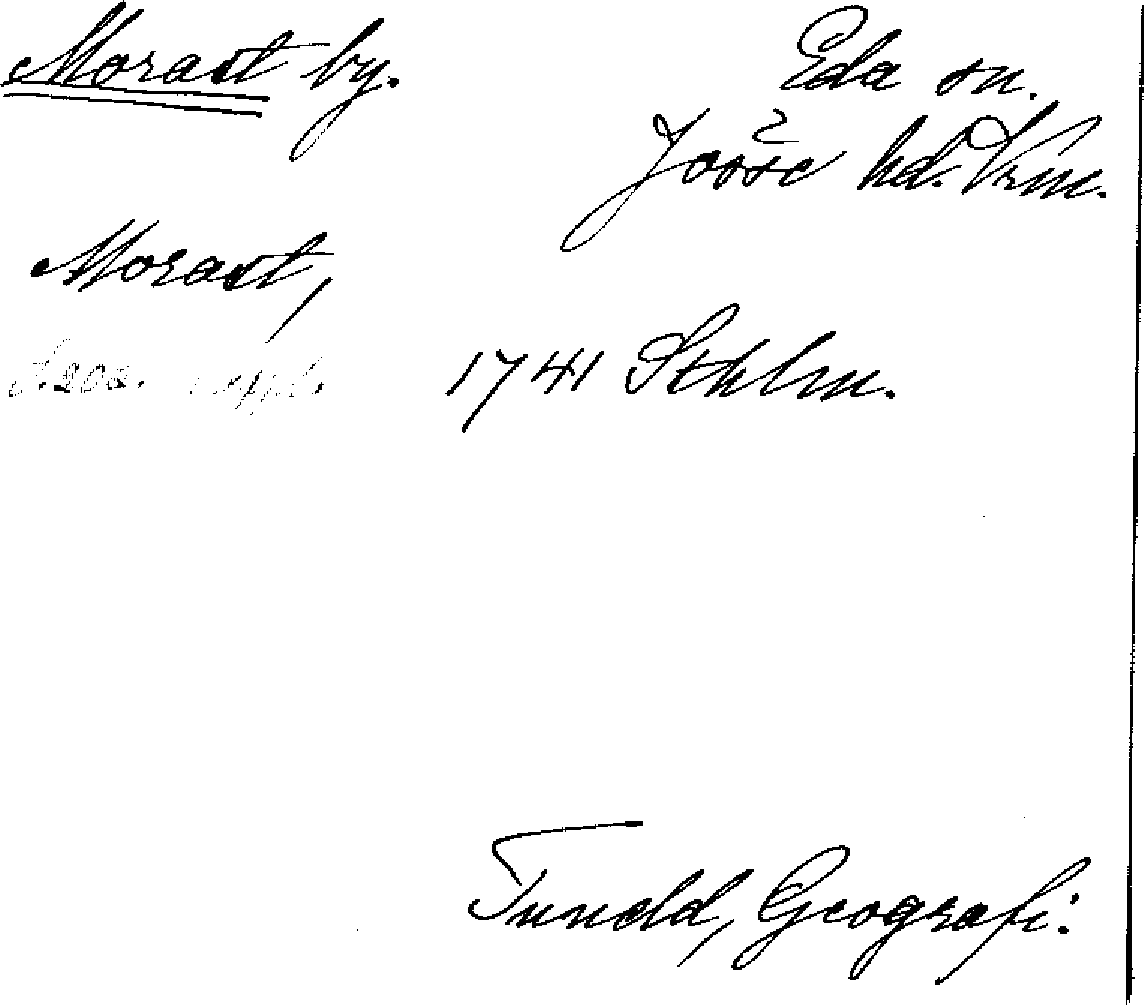 Morast by.
Eda sn.
Jösse hd. Vrm.
Morast,
1741 Sthlm.
Tuneld, Geografi.